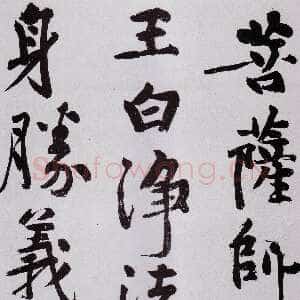 菩薩師
王白淨法
身勝義